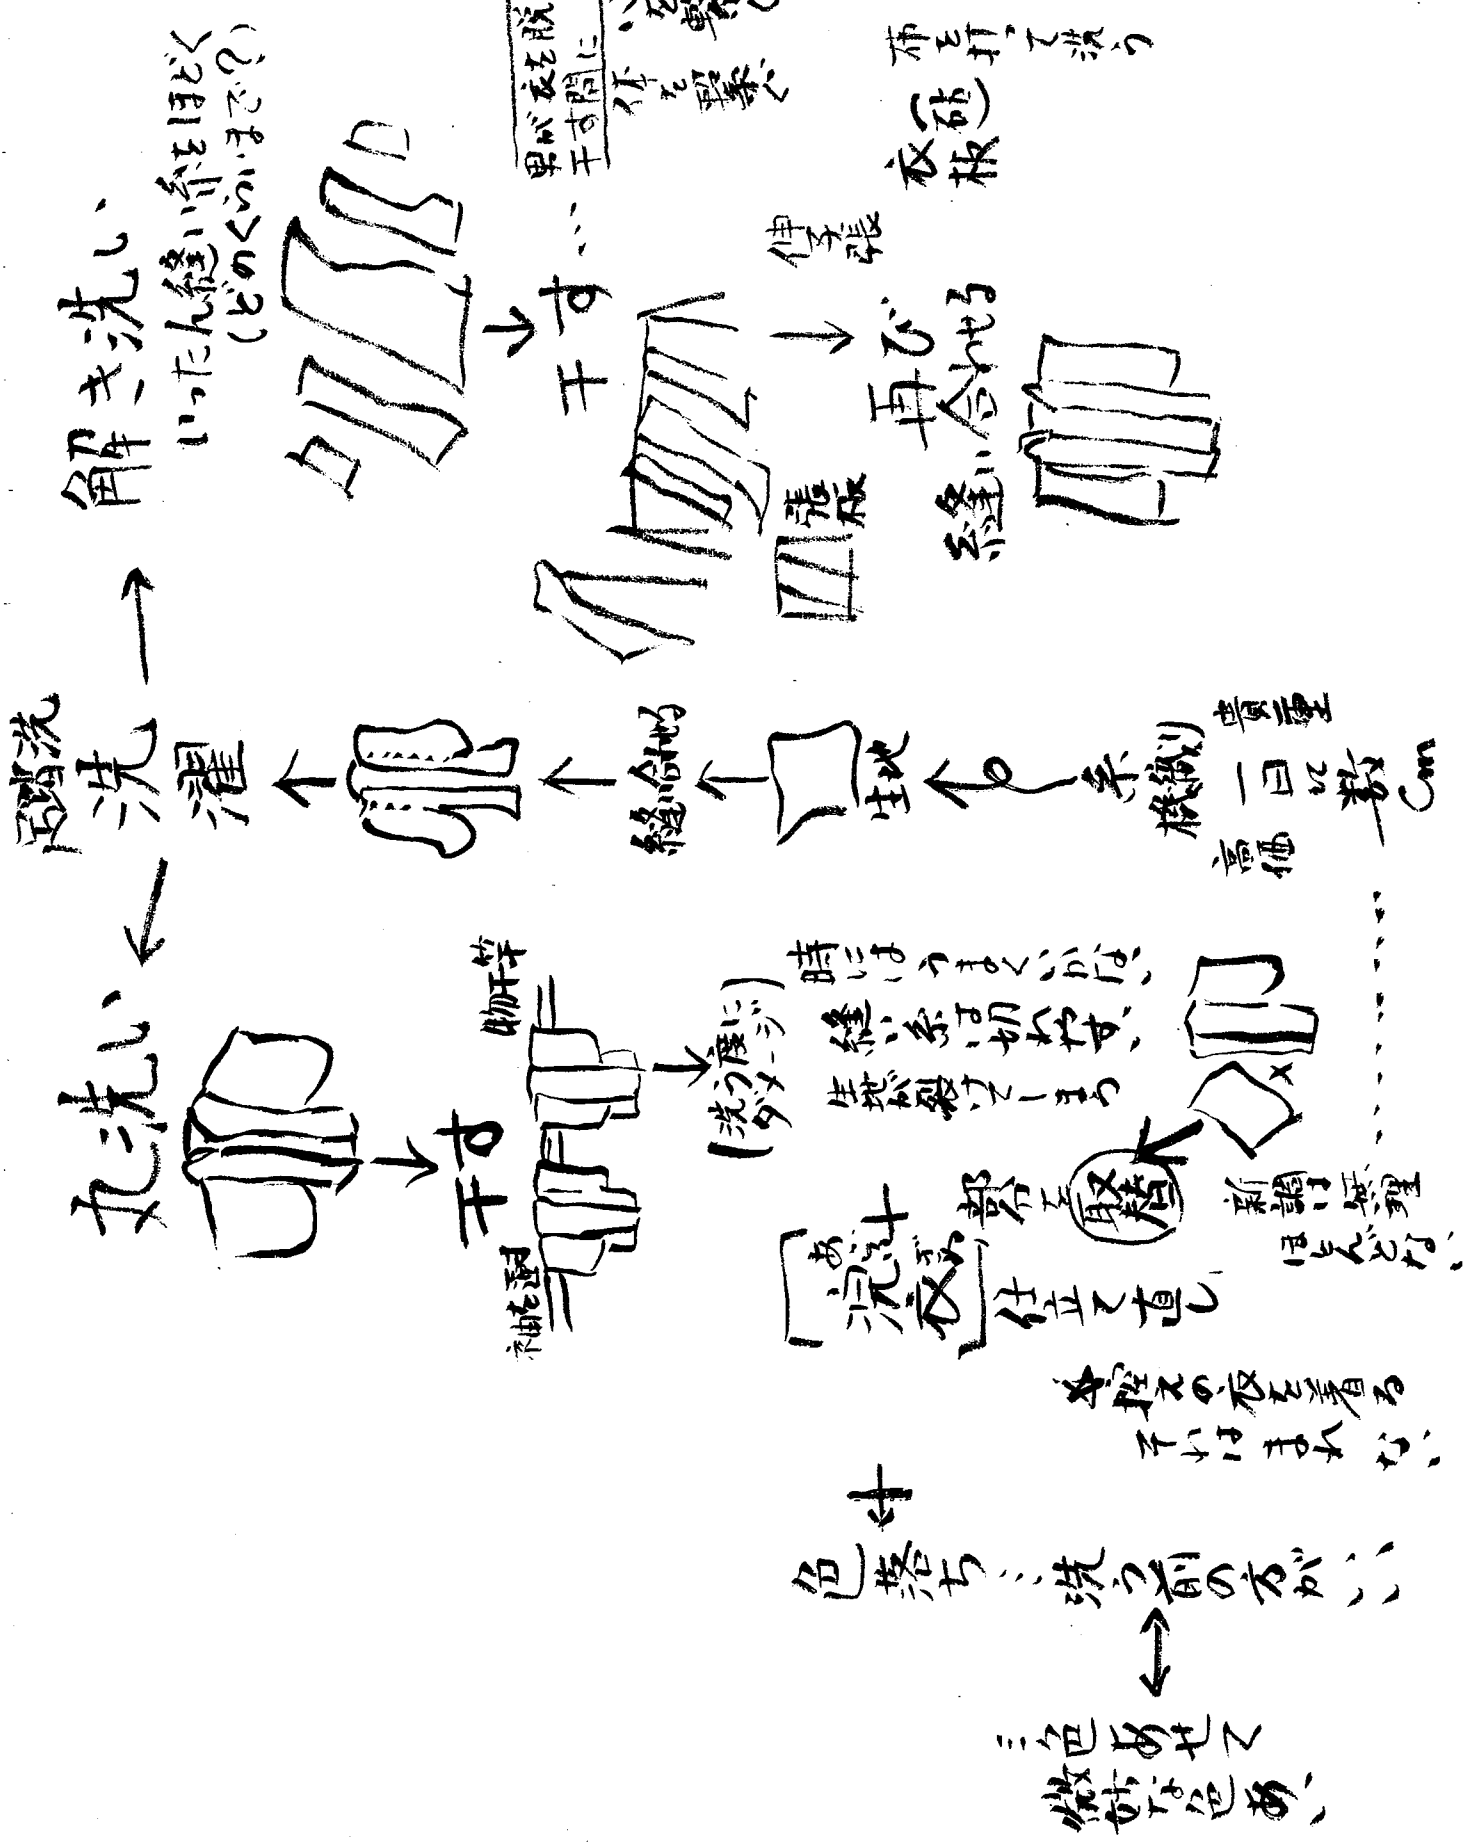 解き洗い
いったん縫い糸をほどく
(どのくらいまで?)
干す
男が衣を脱
干す間に
伸子張
張板
再び
縫い合わせる
布を打って洗う
衣(砧)
板
踏洗
洗濯
縫い合わせる
生地
糸
機織り
貴重
高価
一日に数cm
丸洗い
干す
物干竿
袖を通
(洗う度に
ダメージ)
時にはうまくいかない
縫い糸は切れやすい
生地が裂けてしまう
部分を取替
新調は無理
ほとんどない
あらいぎぬ
浣衣
仕立て直し
控えの衣を着る
それはまれ
色落ち…洗う前の方がいい
…色あせて
微妙な色あい